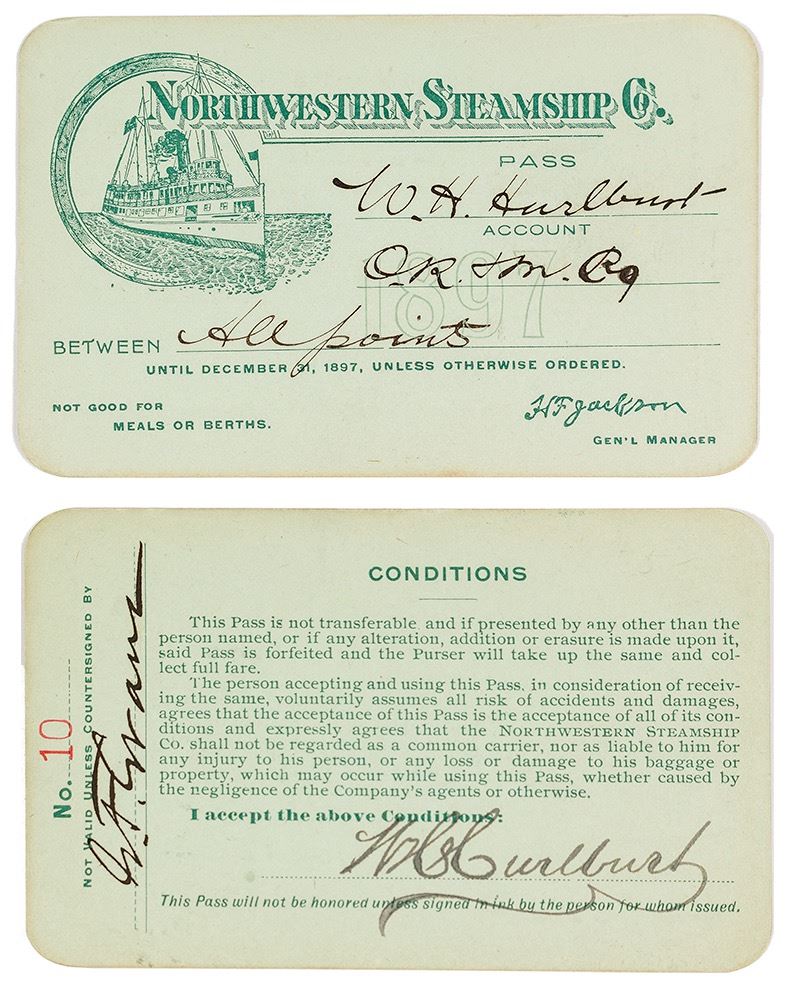 NORTHWESTERN STEAMSHIP CO.
PASS
W. H. Hurlburt
ACCOUNT
O.R. & N. Co
1897
BETWEEN All points
UNTIL DECEMBER 31, 1897, UNLESS OTHERWISE ORDERED.
NOT GOOD FOR
MEALS OR BERTHS.
H F Jackson
GEN'L MANAGER
No. 10
NOT VALID UNLESS COUNTERSIGNED BY
CONDITIONS
This Pass is not transferable and if presented by any other than the
person named, or if any alteration, addition or erasure is made upon it,
said Pass is forfeited and the Purser will take up the same and col-
lect full fare.
The person accepting and using this Pass, in consideration of receiv-
ing the same, voluntarily assumes all risk of accidents and damages,
agrees that the acceptance of this Pass is the acceptance of all of its con-
ditions and expressly agrees that the NORTHWESTERN STEAMSHIP
Co. shall not be regarded as a common carrier, nor as liable to him for
any injury to his person, or any loss or damage to his baggage or
property, which may occur while using this Pass, whether caused by
the negligence of the Company's agents or otherwise.
I accept the above Conditions:
W H Hurlburt
This Pass will not be honored unless signed in ink by the person for whom issued.